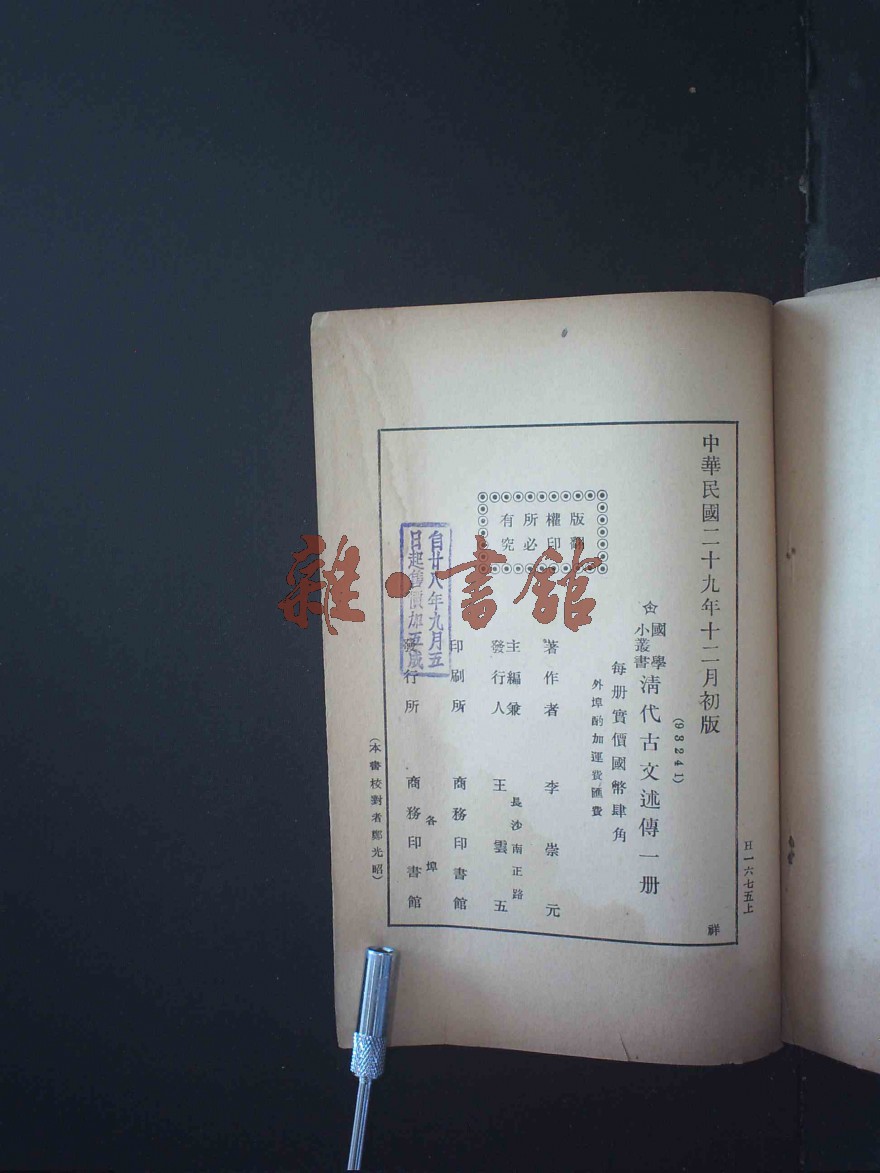 中華民國二十九年十二月初版
(93241)
國學
小叢書
清代古文述傳一册
每册實價國幣肆角
外埠酌加運費匯費
版權所有
翻印必究
著作者 李崇元
主編兼
發行人 王雲五
長沙南正路
印刷所 商務印書館
發行所 商務印書館
各埠
(本書校對者鄭光昭)
H一六七五上
祥
自廿八年九月五
日起售價加五成
雜·書館